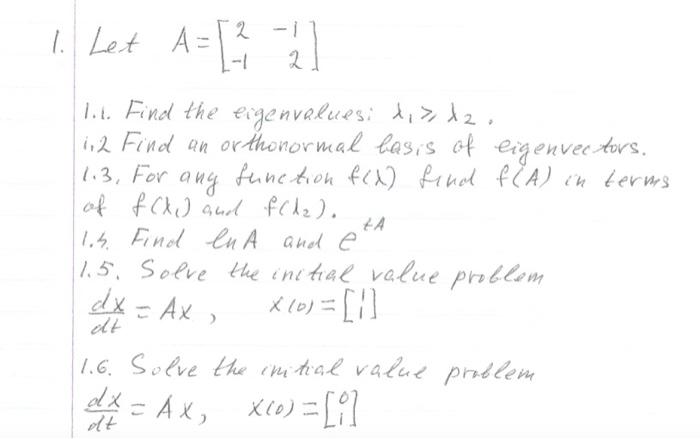 1. Let A = [2 -1
-1 2]
1.1. Find the eigenvalues: λ₁ ≥ λ₂.
1.2 Find an orthonormal basis of eigenvectors.
1.3. For any function f(λ) find f(A) in terms
of f(λ₁) and f(λ₂).
1.4. Find ln A and e^{tA}
1.5. Solve the initial value problem
dx/dt = Ax, x(0) = [1 1]
1.6. Solve the initial value problem
dx/dt = Ax, x(0) = [0 1]